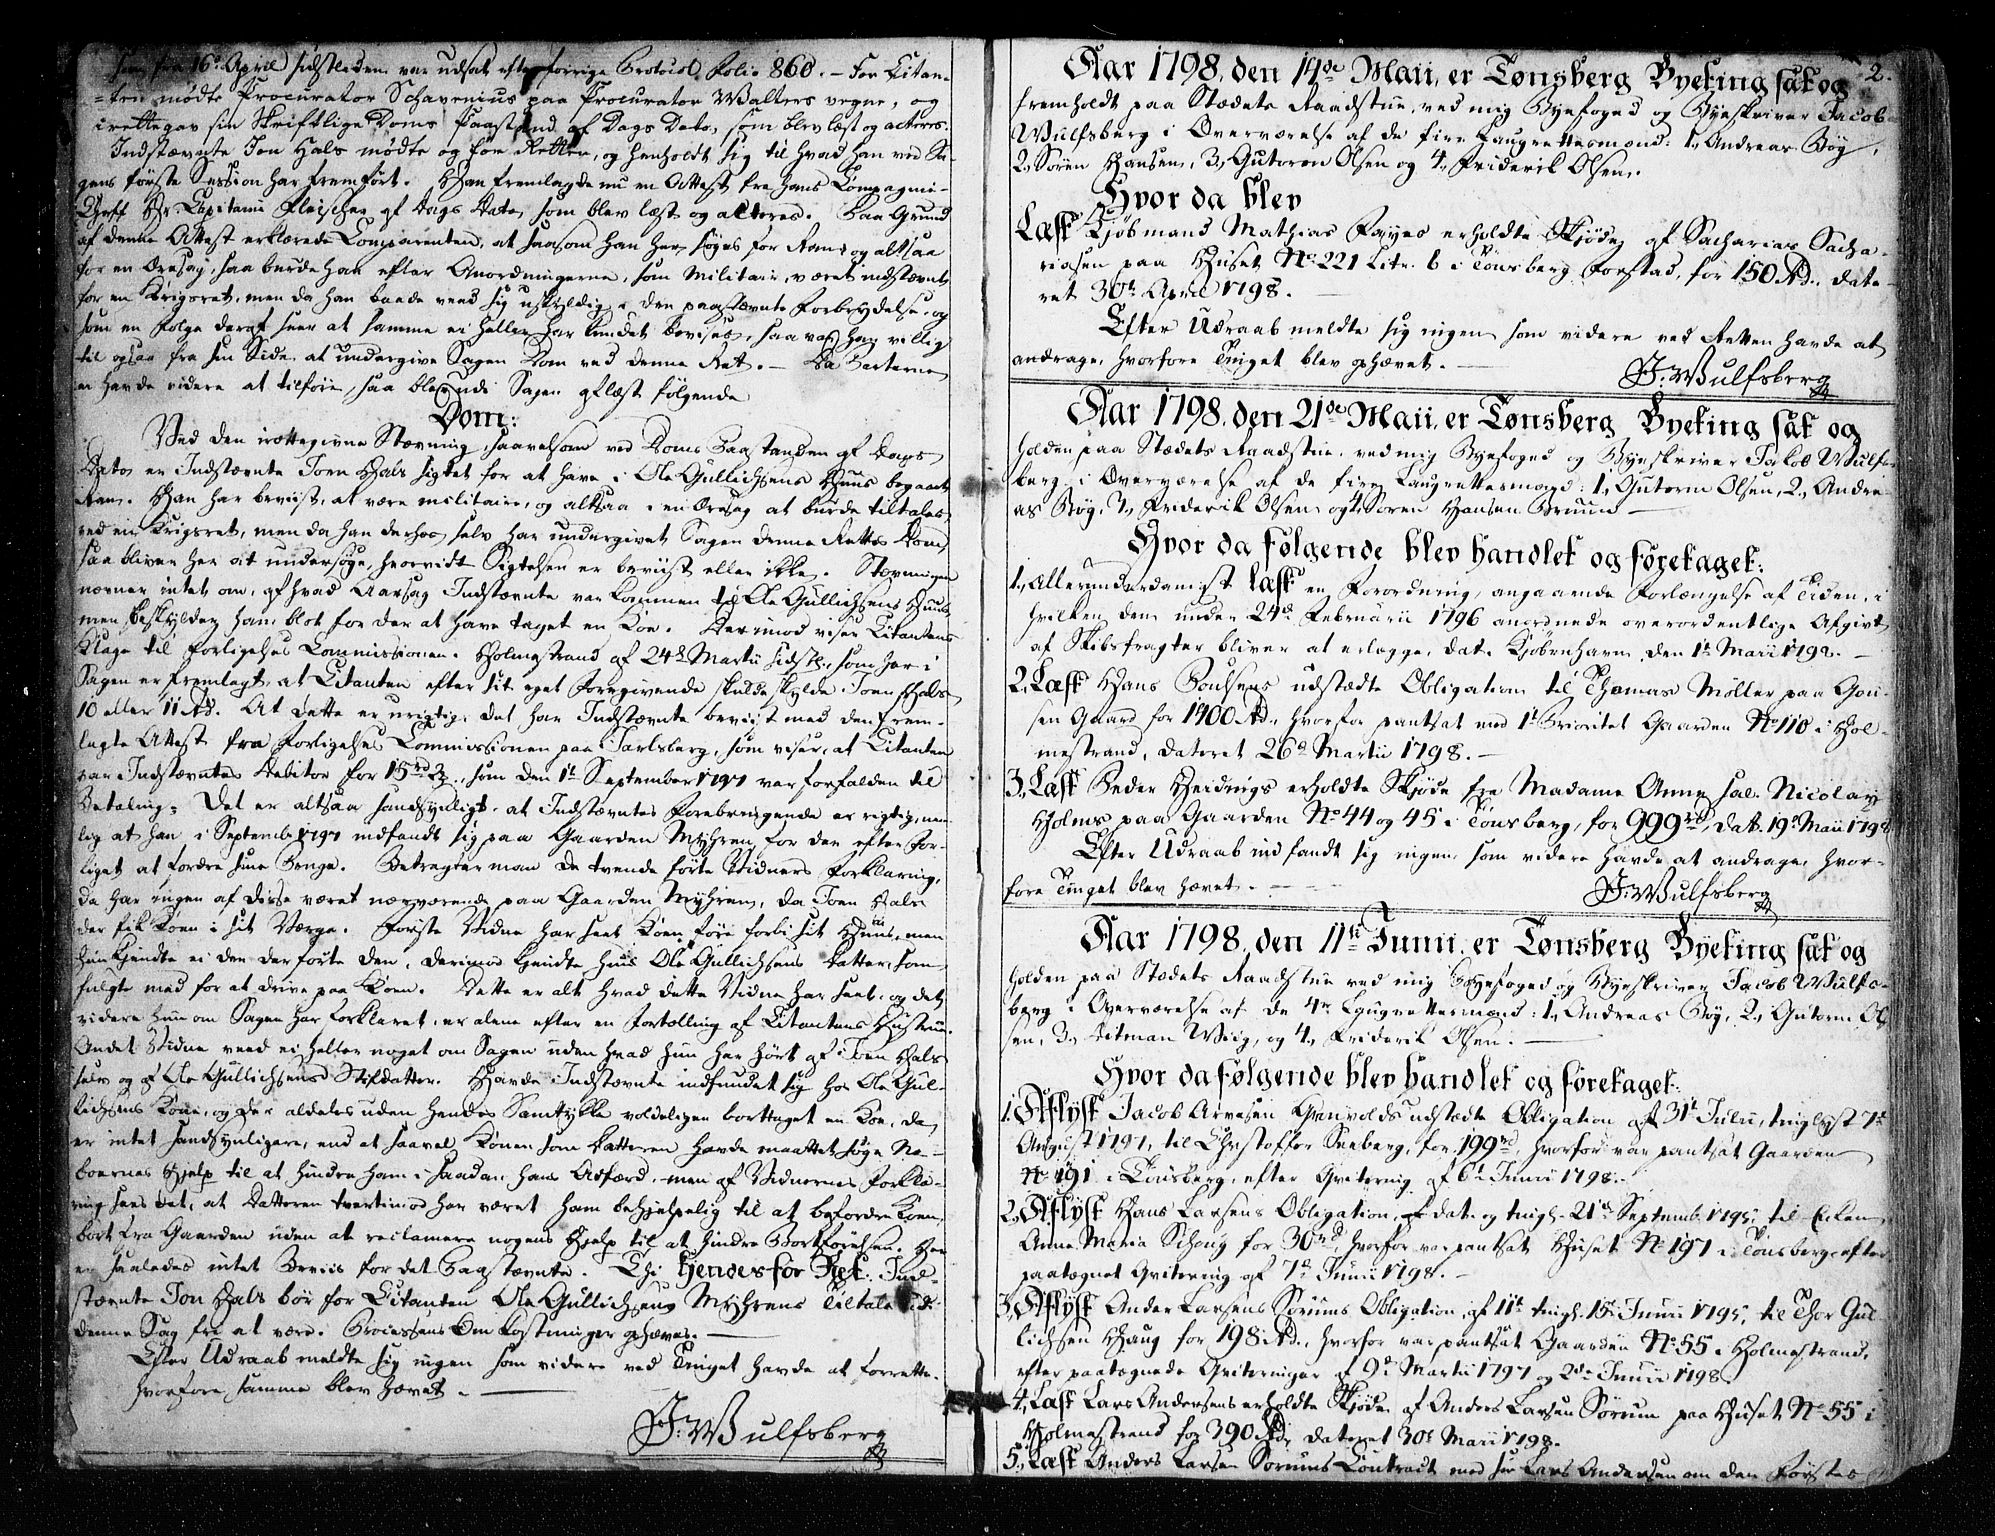 som fra 16de April sidstleden var udsat efter forrige Protocol, Folio 860. - For Citan-
ten mødte Procurator Schavenius paa Procurator Walters vegne, og
irettegav sin skriftlige Doms Paastand af Dags Dato, som blev læst og acteres.
Indstævnte Jon Hals mødte og for Retten, og henholdt sig til hvad han ved Sa-
gens første Session har fremført. Han fremlagde nu en Attest fra hans Compagnie-
Cheff Hr. Capitain Fleischer af Dags Dato, som blev læst og acteres. Paa Grund
af denne Attest erklærede Comparenten, at saasom han her søges for Ran, og altsaa
for en Æresag, saa burde han efter Anordningerne, som Militair, været indstævnt
for en Krigsret, men da han baade veed sig uskyldig i den paastævnte Forbrydelse, og
som en Følge deraf seer at samme ei heller har kundet bevises, saa var han villig
til ogsaa fra sin Side at undergive Sagen Dom ved denne Ret. - Da Parterne
ei havde videre at tilføie, saa blev udi Sagen aflæst følgende
Dom:
Ved den irettegivne Stævning, saavelsom ved Doms Paastanden af Dags
Dato er Indstævnte Joen Hals sigtet for at have i Ole Gullichsens Huus begaaet
Ran. Han har beviist, at være militair, og altsaa i en Æresag at burde tiltales
ved en Krigsret, men da han derhos selv har undergivet Sagen denne Rettes Dom,
saa bliver her at undersøge, hvorvidt Sigtelsen er beviist eller ikke. Stævningen
nævner intet om, af hvad Aarsag Indstævnte var kommen til Ole Gullichsens Huus,
men beskylder ham blot for der at have taget en Koe. Derimod viser Citantens
Klage til Forligelses Commissionen i Holmestrand af 24de Martii sidstl., som her i
Sagen er fremlagt, at Citanten efter sit eget Foregivende skulde skylde Joen Hals
10 eller 11 Rd. At dette er urigtigt, det har Indstævnte beviist med den frem-
lagte Attest fra Forligelses Commissionen paa Jarlsberg, som viser, at Citanten
var Indstævntes Debitor for 15 rd. 2 ß., som den 1te September 1797 var forfalden til
Betaling. Det er altsaa sandsynligt, at Indstævntes Forebringende er rigtig, nem-
lig at han i Septemb. 1797 indfandt sig paa Gaarden Myhren, for der efter For-
liget at fordre sine Penge. Betragter man de tvende førte Vidners Forklaring,
da har ingen af disse været nærværende paa Gaarden Myhren, da Joen Hals
der fik Koen i sit Værge. Første Vidne har seet Koen føre forbi sit Huus, men
hun kjendte ei den der førte den, derimod kjendte hun Ole Gullichsens Datter, som
fulgte med for at drive paa Koen. Dette er alt hvad dette Vidne har seet, og det
videre hun om Sagen har forklaret, er alene efter en Fortælling af Citantens Hustrue.
Andet Vidne veed ei heller noget om Sagen uden hvad hun har hørt af Joen Hals
selv og af Ole Gullichsens Stifdatter. Havde Indstævnte indfundet sig hos Ole Gul-
lichsens Kone, og der aldeles uden hendes Samtykke voldeligen borttaget en Koe, da
er intet sandsynligere, end at saavel Konen som Datteren havde maattet søge Na-
boernes Hjelp til at hindre ham i saadan hans Adfærd, men af Vidnernes Forkla-
ring sees det, at Datteren tvertimod har været ham behjelpelig til at befordre Koen
bort fra Gaarden uden at reclamere nogens Hjelp til at hindre Bortførelsen. Her
er saaledes intet Beviis for det Paastævnte. Thi kjendes for Ret: Ind-
stævnte Jon Hals bør for Citanten Ole Gullichsens Myhrens Tiltale i
denne Sag fri at være. Processens Omkostninger ophæves.
Efter Udraab meldte sig ingen som videre ved Tinget havde at forrette,
hvorfore samme blev hævet. -
J. Wulfsberg
2.
Aar 1798, den 14de Maii, er Tønsberg Byeting sat og
fremholdt paa Stædets Raadstue, ved mig Byefoged og Byeskriver Jacob
Wulfsberg i Overværelse af de fire Laugrettesmænd: 1., Andreas Bøg,
2., Søren Hansen, 3., Gutorm Olsen og 4., Friderik Olsen.
Hvor da blev
Læst Kjøbmand Mathias Fayes erholdte Skjøde af Sacharias Sacha-
riasen paa Huset No. 221 Litr. b i Tønsberg Forstad, for 150 Rd., date-
ret 30te April 1798.
Efter Udraab meldte sig ingen som videre ved Retten havde at
andrage, hvorfore Tinget blev ophævet. -
J. Wulfsberg
Aar 1798, den 21de Maii, er Tønsberg Byeting sat og
holden paa Stædets Raadstue, ved mig Byefoged og Byeskriver Jakob Wulfs-
berg, i Overværelse af de fire Laugrettesmænd: 1., Gutorm Olsen, 2., Andre-
as Bøg, 3., Friderik Olsen og 4., Søren Hansen Bruun -
Hvor da følgende blev handlet og foretaget:
1., Allerunderdanigst læst en Forordning, angaaende Forlængelse af Tiden, i
hvilken den under 24de Februarii 1796 anordnede overordentlige Afgivt
af Skibsfragter bliver at erlægge, dat. Kjøbenhavn den 1te Maii 1798. -
2., Læst Hans Poulsens udstædte Obligation til Thomas Møller paa Gou-
sen Gaard for 1400 Rd., hvorfor pantsat med 1te Prioritet Gaarden No. 110 i Hol-
mestrand, dateret 26de Martii 1798. -
3., Læst Peder Heidrigs erholdte Skjøde fra Madame Anne sal. Nicolay
Holms paa Gaarden No. 44 og 45 i Tønsberg, for 999 rd., dat. 19de Maii 1798
Efter Udraab indfandt sig ingen som videre havde at andrage, hvor-
fore Tinget blev hævet. -
J. Wulfsberg
Aar 1798, den 11te Junii, er Tønsberg Byeting sat og
holden paa Stædets Raadstue ved mig Byefoged og Byeskriver Jacob Wulfs-
berg i Overværelse af de 4re Laugrettesmænd: 1., Andreas Bøg, 2., Gutorm Ol-
sen, 3., Ditman Wiig, og 4., Friderik Olsen. -
Hvor da følgende blev handlet og foretaget:
1., Aflyst Jacob Arvesen Grønvolds udstædte Obligation af 31te Julii, tinglyst 7de
August 1797, til Christoffer Seeberg, for 199 rd., hvorfor var pantsat Gaarden
No. 191 i Tønsberg, efter Qvitering af 6te Junii 1798. -
2., Aflyst Hans Larsens Obligation, dat. og tingl. 21de Septemb. 1795, til Enken
Anne Maria Schoug for 30 rd., hvorfor var pantsat Huset No. 197 i Tønsberg, efter
paategnet Qvitering af 7de Junii 1798. -
3., Aflyst Anders Larsens Sørums Obligation, af 11te tingl. 15de Junii 1795, til Thor Gul-
lichsen Haug for 198 Rd., hvorfor var pantsat Gaarden No. 55 i Holmestrand,
efter paategnede Qviteringer af 9de Martii 1797 og 2den Junii 1798.
4., Læst Lars Andersens erholdte Skjøde af Anders Larsen Sørum paa Huset No. 55 i
Holmestrand for 390 Rd., dateret 30te Maii 1798.
5., Læst Anders Larsen Sørums Contract med sin Lars Andersen om den Førstes